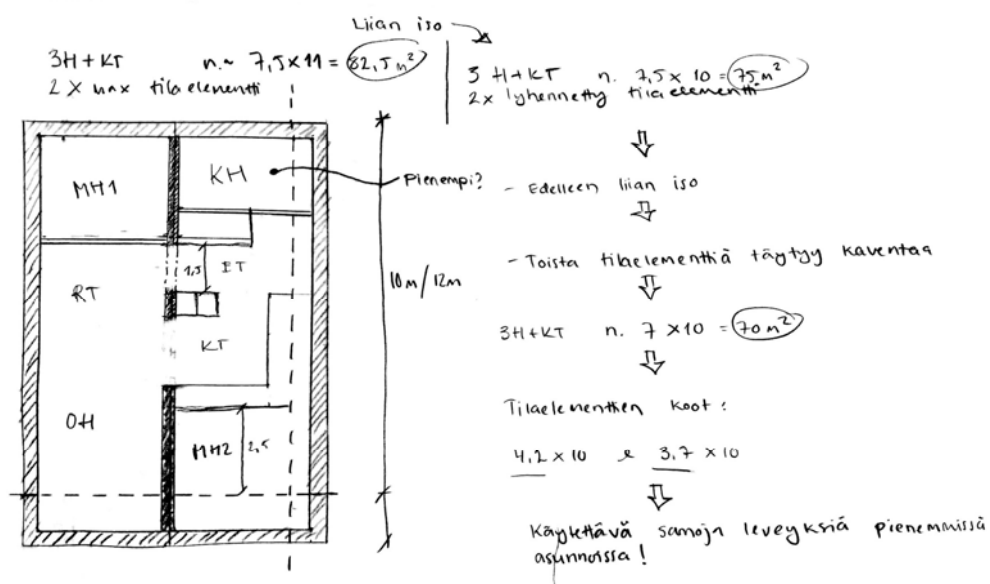 Liian iso
3H+KT n. 7,5x11 = 82,5 m²
2 x max tilaelementti
3 H+KT n. 7,5 x 10 = 75 m²
2x lyhennetty tilaelementti
MH1
KH
Pienempi?
1,5
ET
RT
KT
OH
MH2
2,5
10m/12m
- Edelleen liian iso
- Toista tilaelementtiä täytyy kaventaa
3H+KT n. 7 x 10 = 70 m²
Tilaelementtien koot:
4,2 x 10 & 3,7 x 10
Käytettävä samoja leveyksiä pienemmissä
asunnoissa!